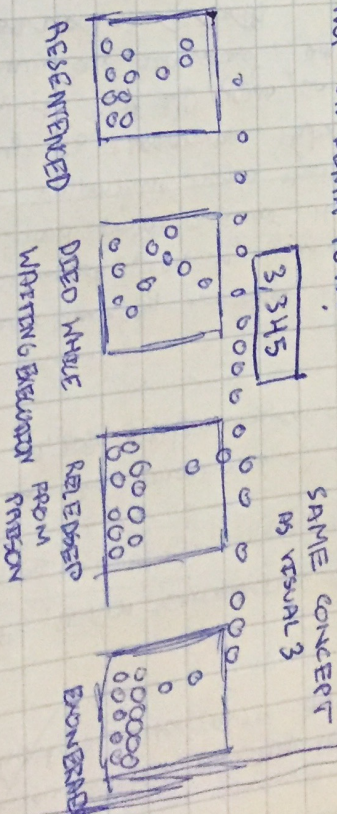 3,345
SAME CONCEPT
AS VISUAL 3
RESENTENCED
DIED WHILE
WAITING EXECUTION
RELEASED
FROM
PRISON
EXONERATED